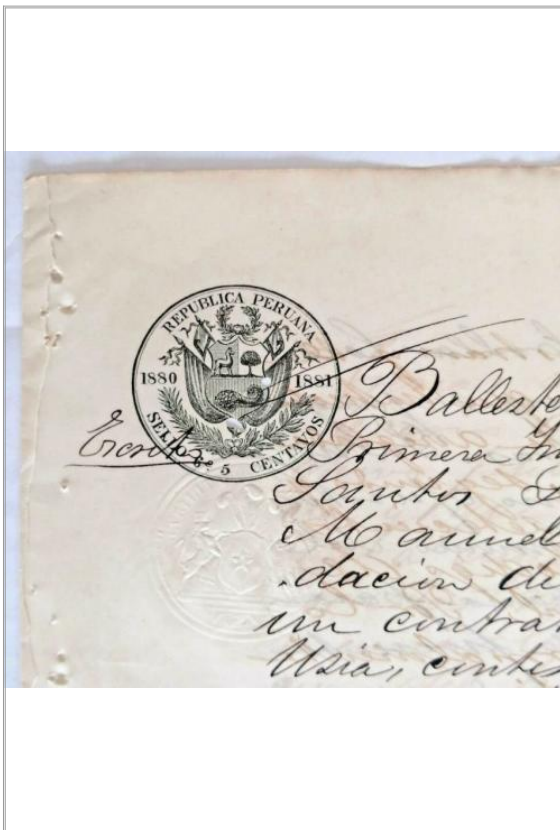 REPUBLICA PERUANA
1880 1881
SELLO 8º 5 CENTAVOS
Balleste
Primera
Santos
Manuel
dacion de
un contra
Usia, contes